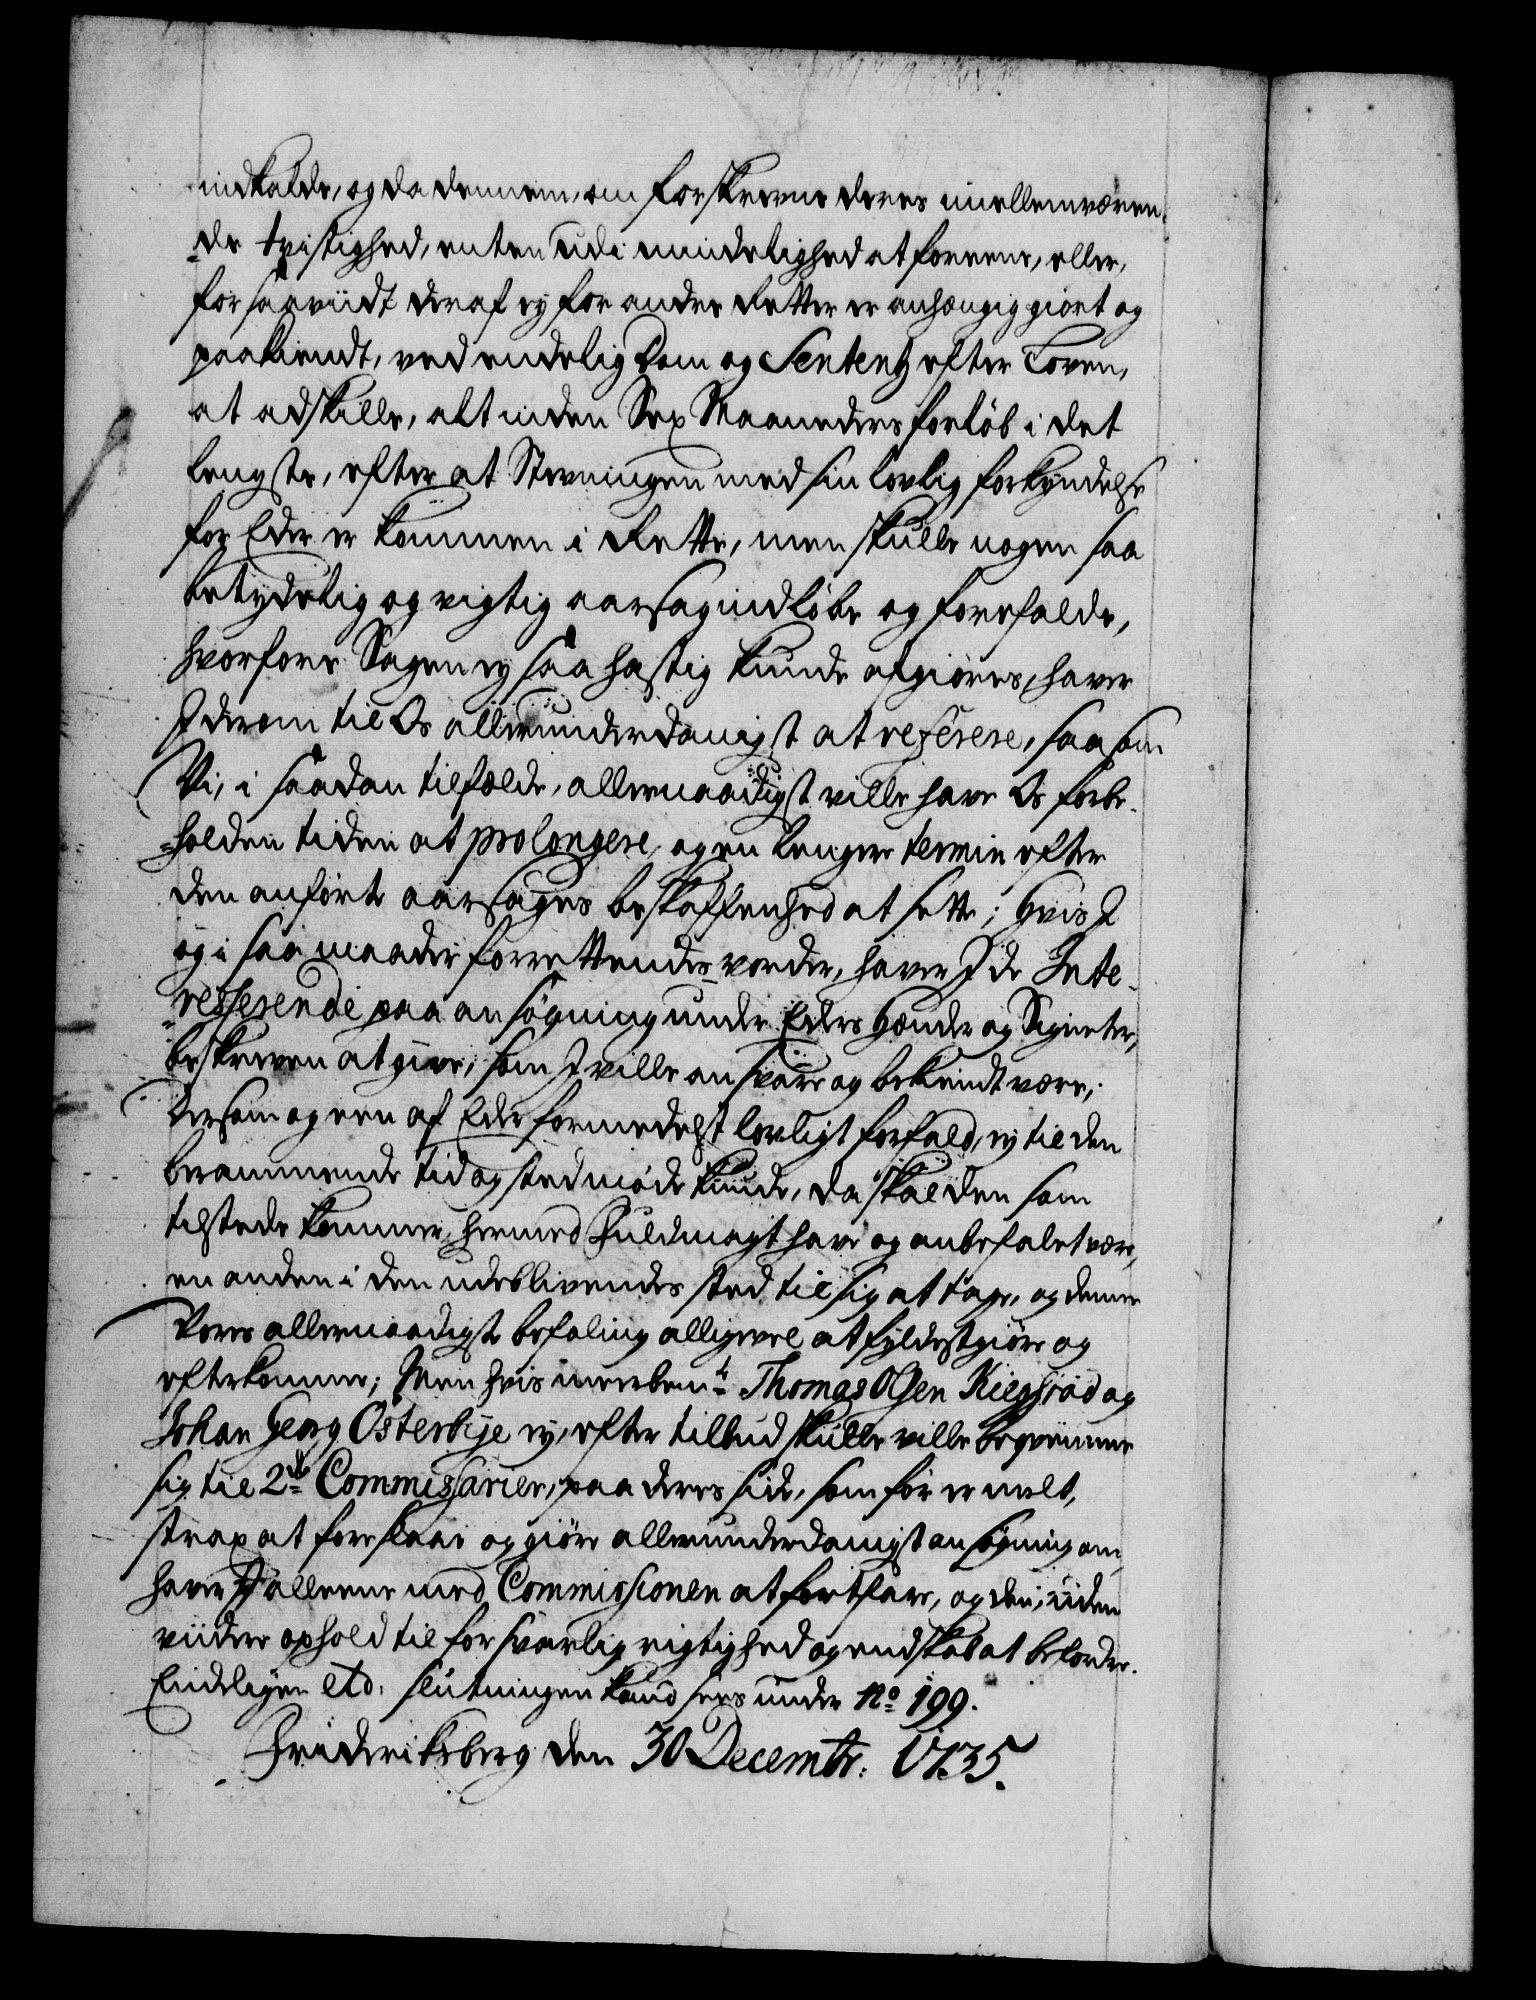 indkalde, og da dennem, om forskrevne deres imellemværen-
de tvistighed, enten udi mindelighed at foreene, eller,
for saaviidt deraf ey for andre Retter er anhængig giort og
paakiendt, ved endelig Dom og Sententz efter Loven,
at adskille, alt inden Sex Maaneders forløb i det
lengste, efter at Stevningen med sin lovlig forkyndelse
for Eder er kommen i Rette, men skulle nogen saa
betydelig og vigtig aarsag indløbe og forefalde,
hvorfore Sagen ey saa hastig kunde afgiøres, haver
I derom til Os allerunderdanigst at referere, saasom
Vi, i saadan tilfælde, allernaadigst ville have Os forbe-
holden tiden at prolongere, og en lengere termin efter
den anførte aarsages beskaffenhed at sette; Hvis I
og i saa maader forrettendes vorder, haver I de Inte-
resserende paa ansøgning under Eders Hænder og Signeter,
beskreven at give, som I ville ansvare og bekiendt være,
Dersom og een af Eder formedelst lovligt forfald, ey til den
berammende tid og sted møde kunde, da skal den som
tilstede kommer, hermed Fuldmagt have og anbefalet være,
en anden i den udeblivendes sted til sig at tage, og denne
Vores allernaadigste befaling alligevel at fyldestgiøre og
efterkomme; Men hvis meerbemte Thomas Olsen Kiegsrød og
Johan Georg Østerbye ey, efter tilbud skulle ville beqvemme
sig til 2de Commissarier, paa deres side, som før er melt,
strax at foreslaae og giøre allerunderdanigst ansøgning om,
haver I alleene med Commissionen at fortfare, og den, uden
viidere ophold til forsvarlig rigtighed og endskab at befordre.
Endeligen etc: slutningen kand sees under No 199.
Friderichsberg den 30 Decembr: 1735.